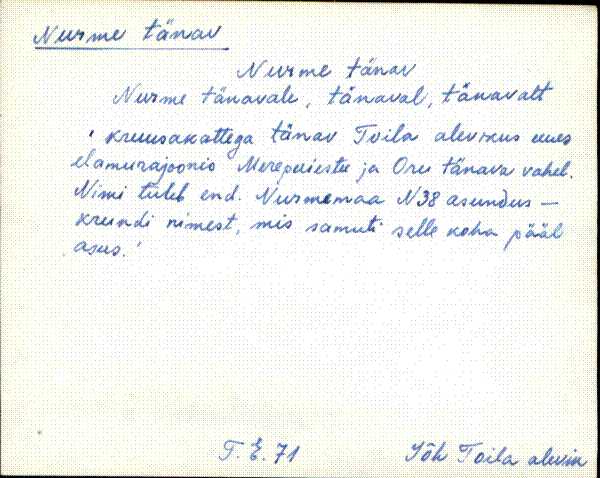 Nurme tänav
Nurme tänav
Nurme tänavale, tänaval, tänavalt
' kruusakattega tänav Toila alevikus uues
elamurajoonis Merepuiestee ja Oru tänava vahel.
Nimi tuleb end. Nurmemaa N38 asundus –
krundi nimest, mis samuti selle koha pääl
asus.'
T.E.71
Jõh Toila alevik